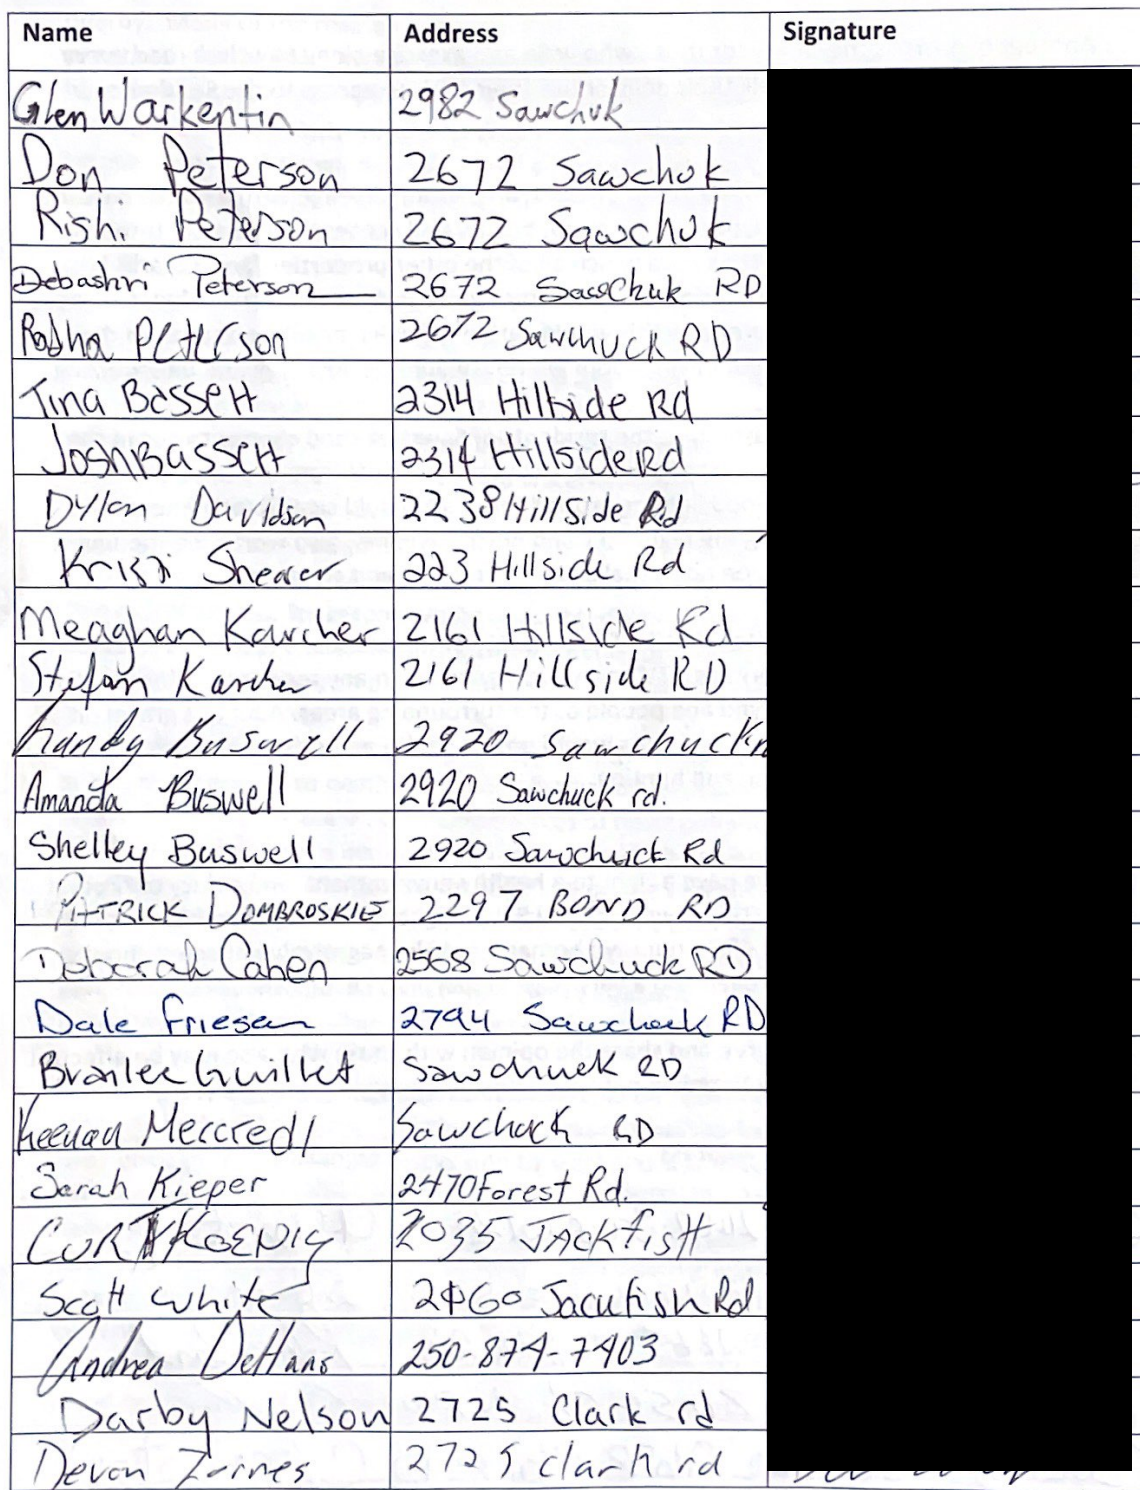 Name Address Signature
Glen Warkentin 2982 Sawchuk
Don Peterson 2672 Sawchuk
Rishi Peterson 2672 Sawchuk
Debashri Peterson 2672 Sawchuk RD
Peterson 2672 Sawchuck RD
Tina Bassett 2314 Hillside Rd
Josh Bassett 2314 Hillside Rd
Dylan Davidson 2238 Hillside Rd
Kristi Shearer 223 Hillside Rd
Meaghan Karcher 2161 Hillside Rd
Stefan Karcher 2161 Hillside RD
Buswell 2920
Amanda Buswell 2920 Sawchuck rd.
Shelley Buswell 2920 Sawchuck Rd
PATRICK DOMBROSKIE 2297 BOND RD
Deborah Cahen 2568 Sawchuck RD
Dale Friesen 2794 Sawchuck RD
Branlee Guillet Sawchuck RD
Keenan Mercredi Sawchuck RD
Sarah Kieper 2470 Forest Rd.
CURT 2035 JACKFISH
Scott White Rd
Andrea 250-874-7403
Darby Nelson 2725 Clark rd
Devon 2725 Clark rd